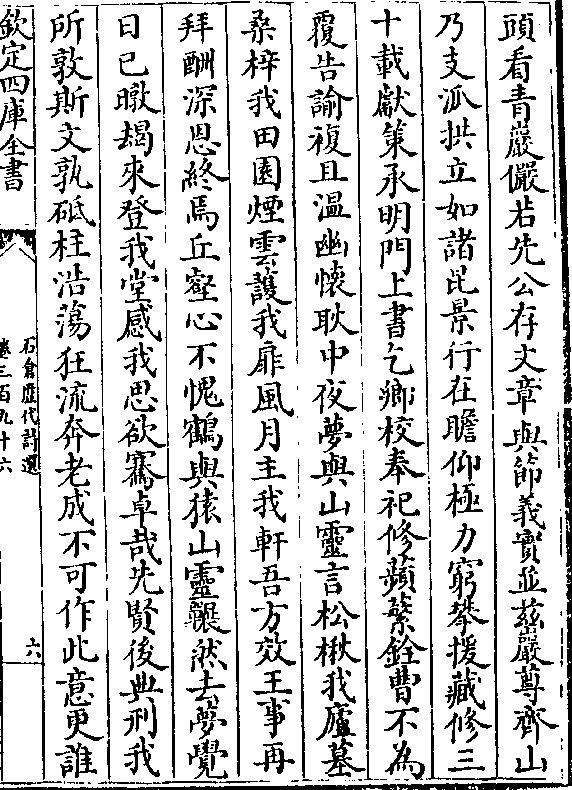 頭看青巖儼若先公存文章與節義實並兹巖尊齊山
乃支派拱立如諸昆景行在瞻仰極力窮攀援藏修三
十載獻策承明門上書乞鄉校奉祀修蘋蘩銓曹不為
覆告諭複且溫幽懷耿中夜夢與山靈言松楸我廬墓
桑梓我田園煙雲護我扉風月主我軒吾方效王事再
拜酬深恩終焉丘壑心不愧鶴與猿山靈囅然去夢覺
日已暾朅來登我堂感我思欲騫卓哉先賢後典刑我
所敦斯文孰砥柱浩蕩狂流奔老成不可作此意更誰
欽定四庫全書
石倉歷代詩選
卷三百九十六
六